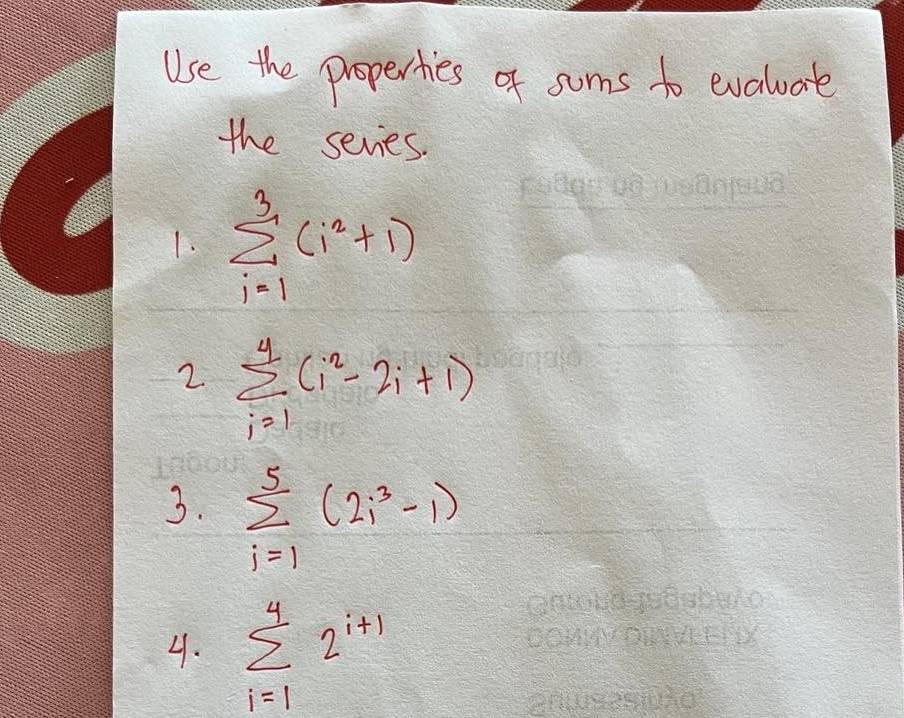 Use the properties of sums to evaluate
the series.
1. $\sum_{i=1}^{3} (i^2+1)$
2 $\sum_{i=1}^{4} (i^2-2i+1)$
3. $\sum_{i=1}^{5} (2i^3-1)$
4. $\sum_{i=1}^{4} 2^{i+1}$